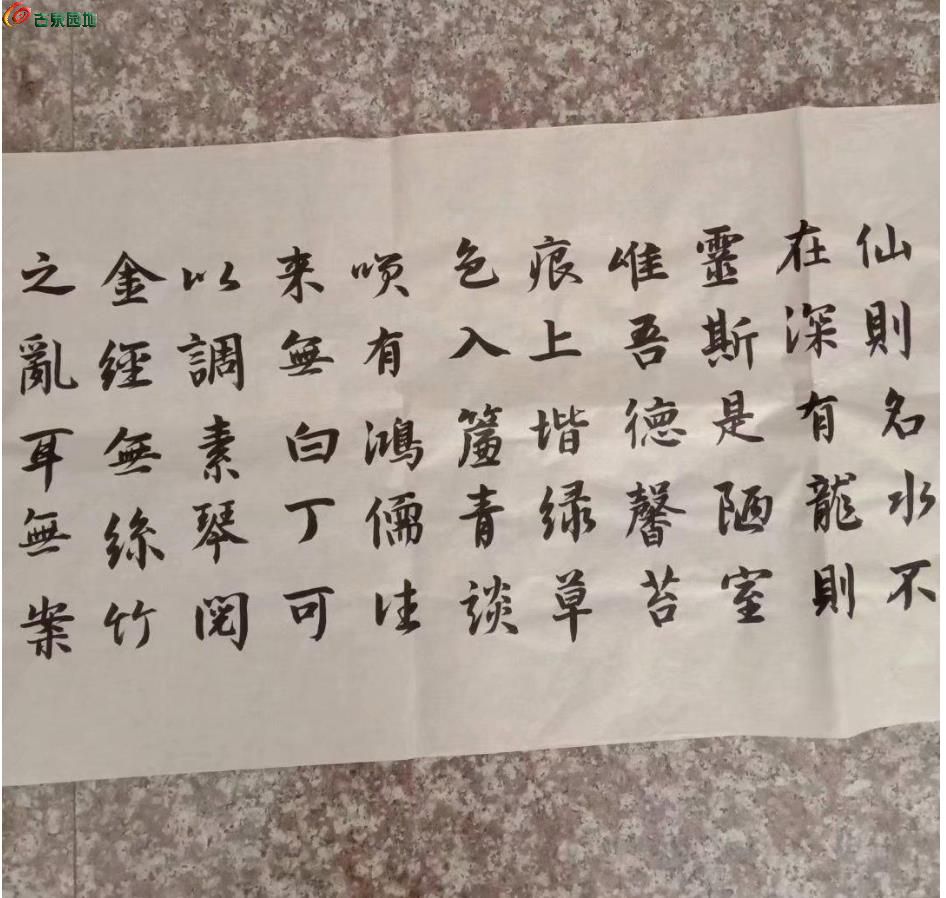 古泉园地
仙則名水不
在深有龍則
靈斯是陋室
惟吾德馨苔
痕上堦緑草
色入簾青談
咲有鴻儒往
来無白丁可
以調素琴閱
金經無絲竹
之亂耳無案